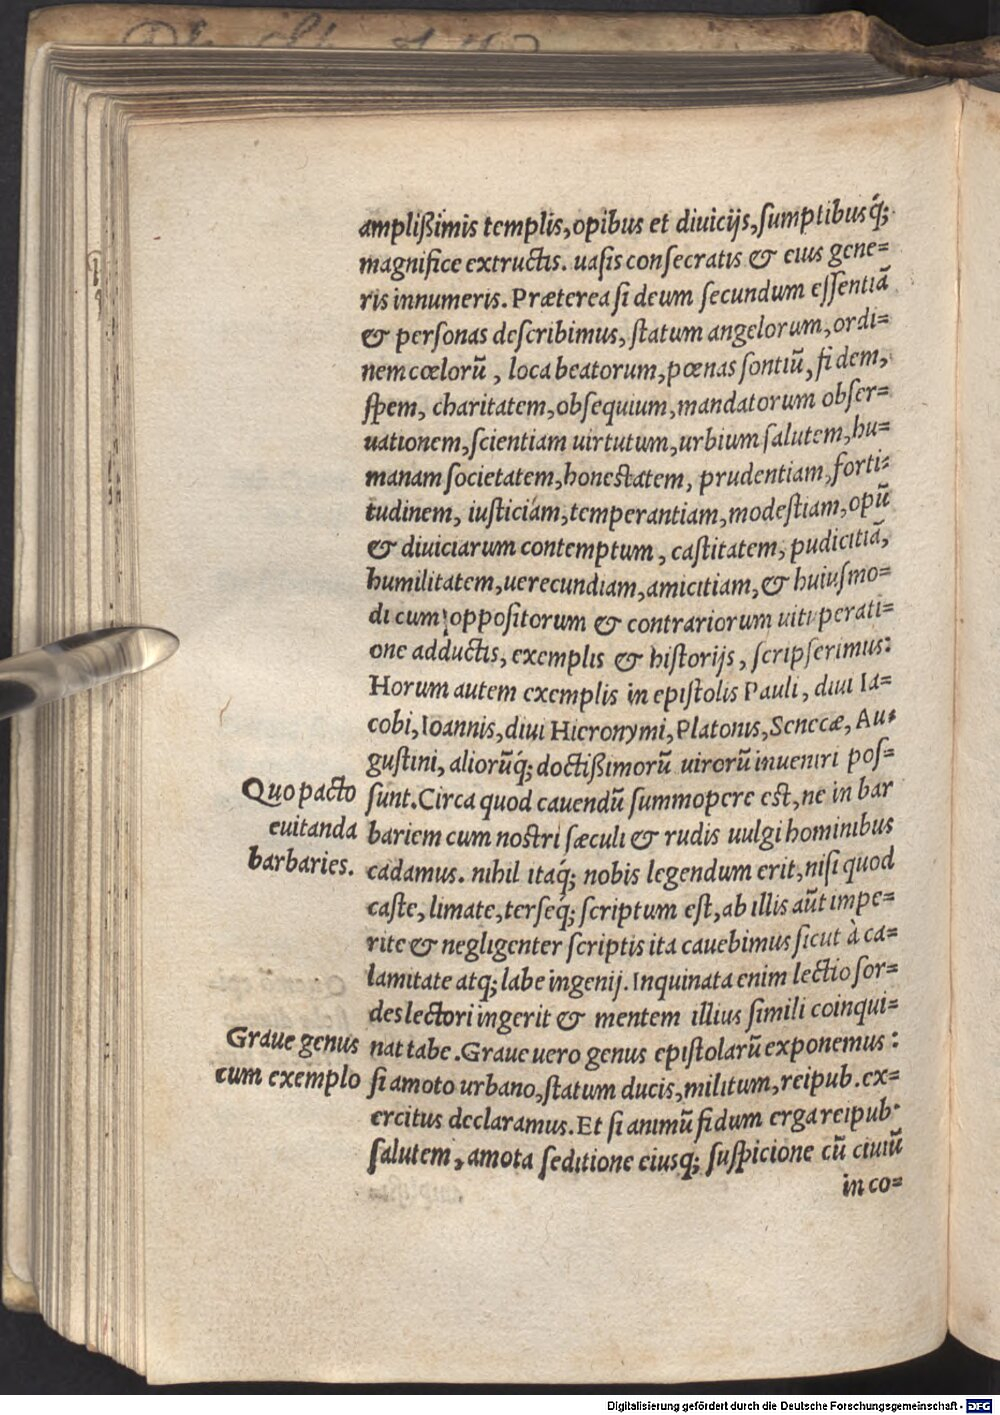 ampliſsimis templis, opibus et diuicijs, ſumptibusq́;
magnifice extructis. uaſis conſecratis & eius gene=
ris innumeris. Præterea ſi deum ſecundum eſſentiã
& perſonas deſcribimus, ſtatum angelorum, ordi=
nem cœlorũ, loca beatorum, pœnas ſontiũ, fidem,
ſpem, charitatem, obſequium, mandatorum obſer=
uationem, ſcientiam uirtutum, urbium ſalutem, hu=
manam ſocietatem, honeſtatem, prudentiam, forti=
tudinem, iuſticiam, temperantiam, modeſtiam, opũ
& diuiciarum contemptum, caſtitatem, pudicitiã,
humilitatem, uerecundiam, amicitiam, & huiuſmo=
di cum oppoſitorum & contrariorum uituperati=
one adductis, exemplis & hiſtorijs, ſcripſerimus:
Horum autem exemplis in epiſtolis Pauli, diui Ia=
cobi, Ioannis, diui Hieronymi, Platonis, Senecæ, Au=
guſtini, aliorũq́; doctiſsimorũ uirorũ inueniri poſ=
Quo pacto ſunt. Circa quod cauendũ ſummopere eſt, ne in bar
euitanda bariem cum noſtri ſæculi & rudis uulgi hominibus
barbaries. cadamus. nihil itaq́; nobis legendum erit, niſi quod
caſte, limate, terſeq́; ſcriptum eſt, ab illis aũt impe=
rite & negligenter ſcriptis ita cauebimus ſicut à ca=
lamitate atq; labe ingenij. Inquinata enim lectio ſor=
des lectori ingerit & mentem illius ſimili coinqui=
Graue genus nat tabe. Graue uero genus epiſtolarũ exponemus:
cum exemplo ſi amoto urbano, ſtatum ducis, militum, reipub. ex=
ercitus declaramus. Et ſi animũ fidum erga reipub.
ſalutem, amota ſeditione eiusq; ſuſpicione cũ ciuiũ
in co=
Digitalisierung gefördert durch die Deutsche Forschungsgemeinschaft - DFG